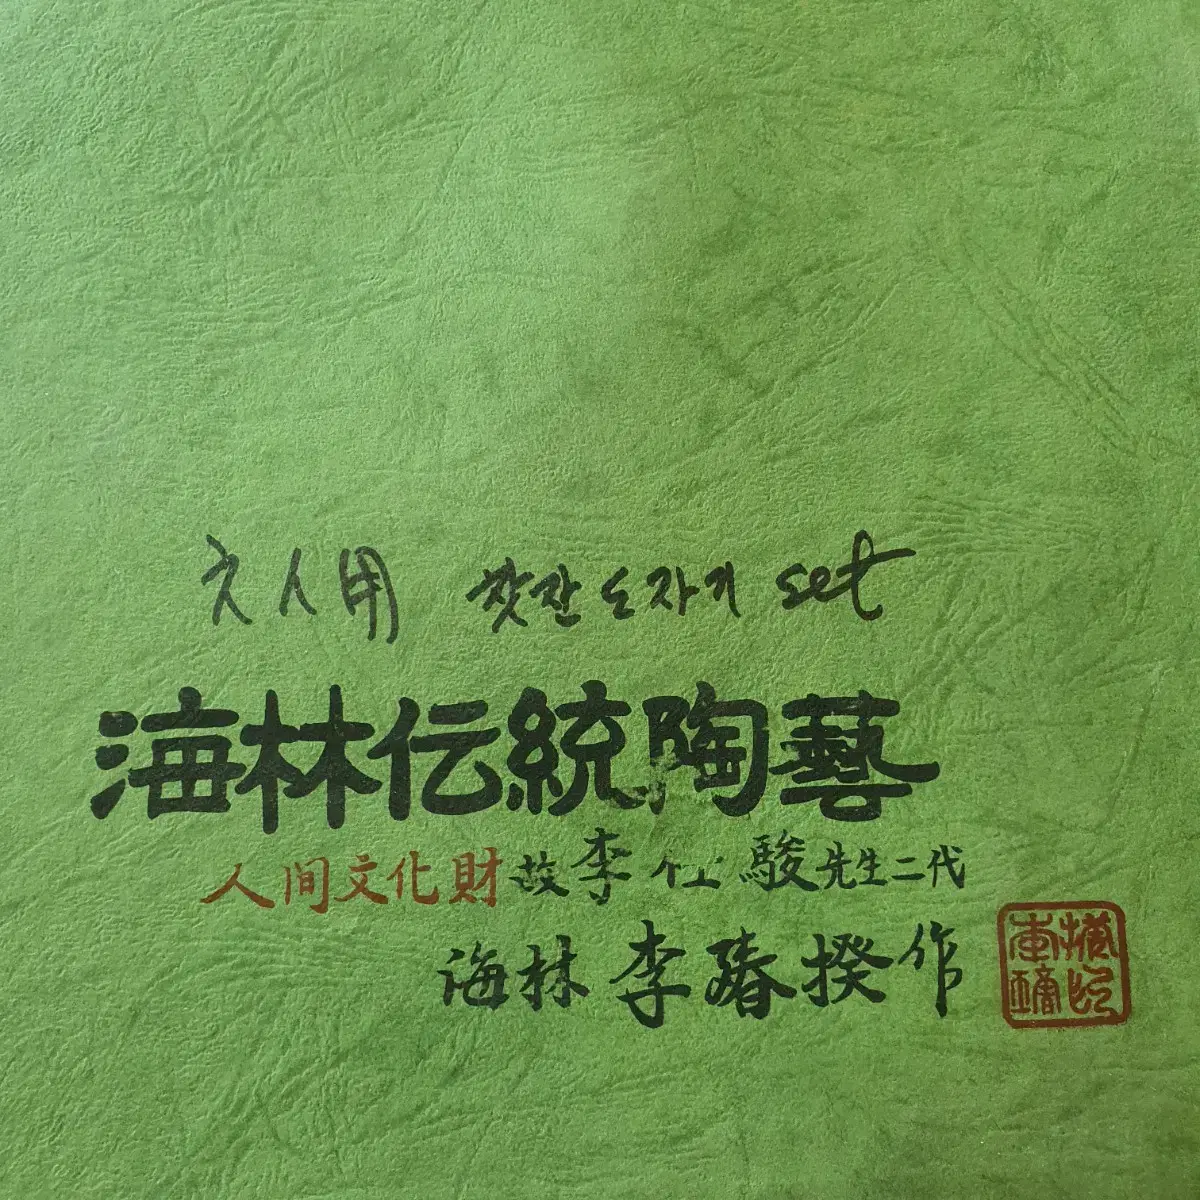 人用 찻잔 도자기 set
海林伝統陶藝
人间文化財 故 李 駿 先生二代
海林 李 揆 作